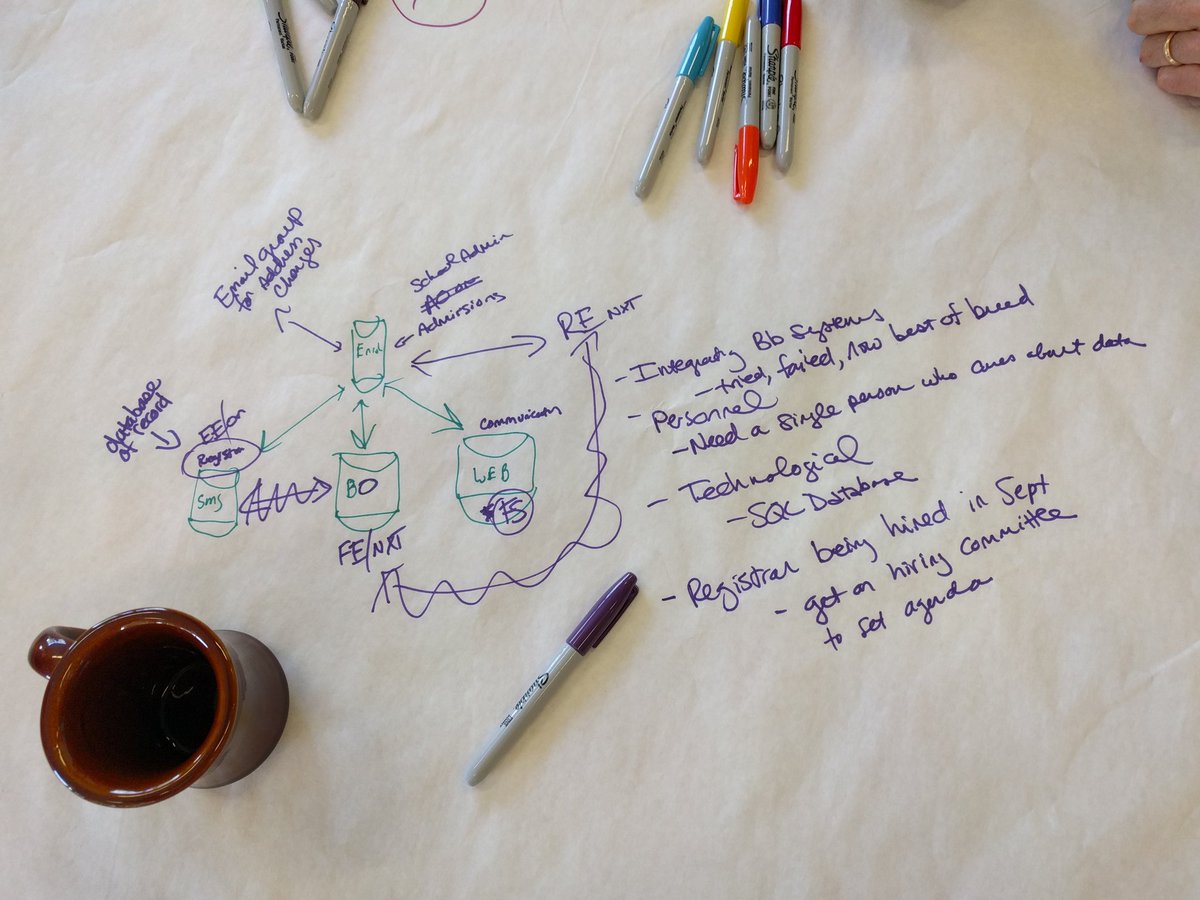 Email group
for Address
Changes
School Admin
Admissions
RE NXT
Enrol
database
of record
EE/on
Registrar
Sms
BO
FE/NXT
Communication
WEB
- Integrating Bb Systems
- tried, failed, now best of breed
- Personnel
- Need a single person who cares about data
- Technological
- SQL Database
- Registrar being hired in Sept
- get on hiring committee
to set agenda
Sharpie
Sharpie